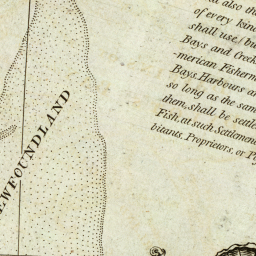 also th
of every kin
shall use, / bu
Bays and Creek
-merican Fisherm
Bays Harbours a
so long as the sam
them, shall be settle
Fish, at such Settlemen
bitants, Proprietors, or P
EWFOUNDLAND